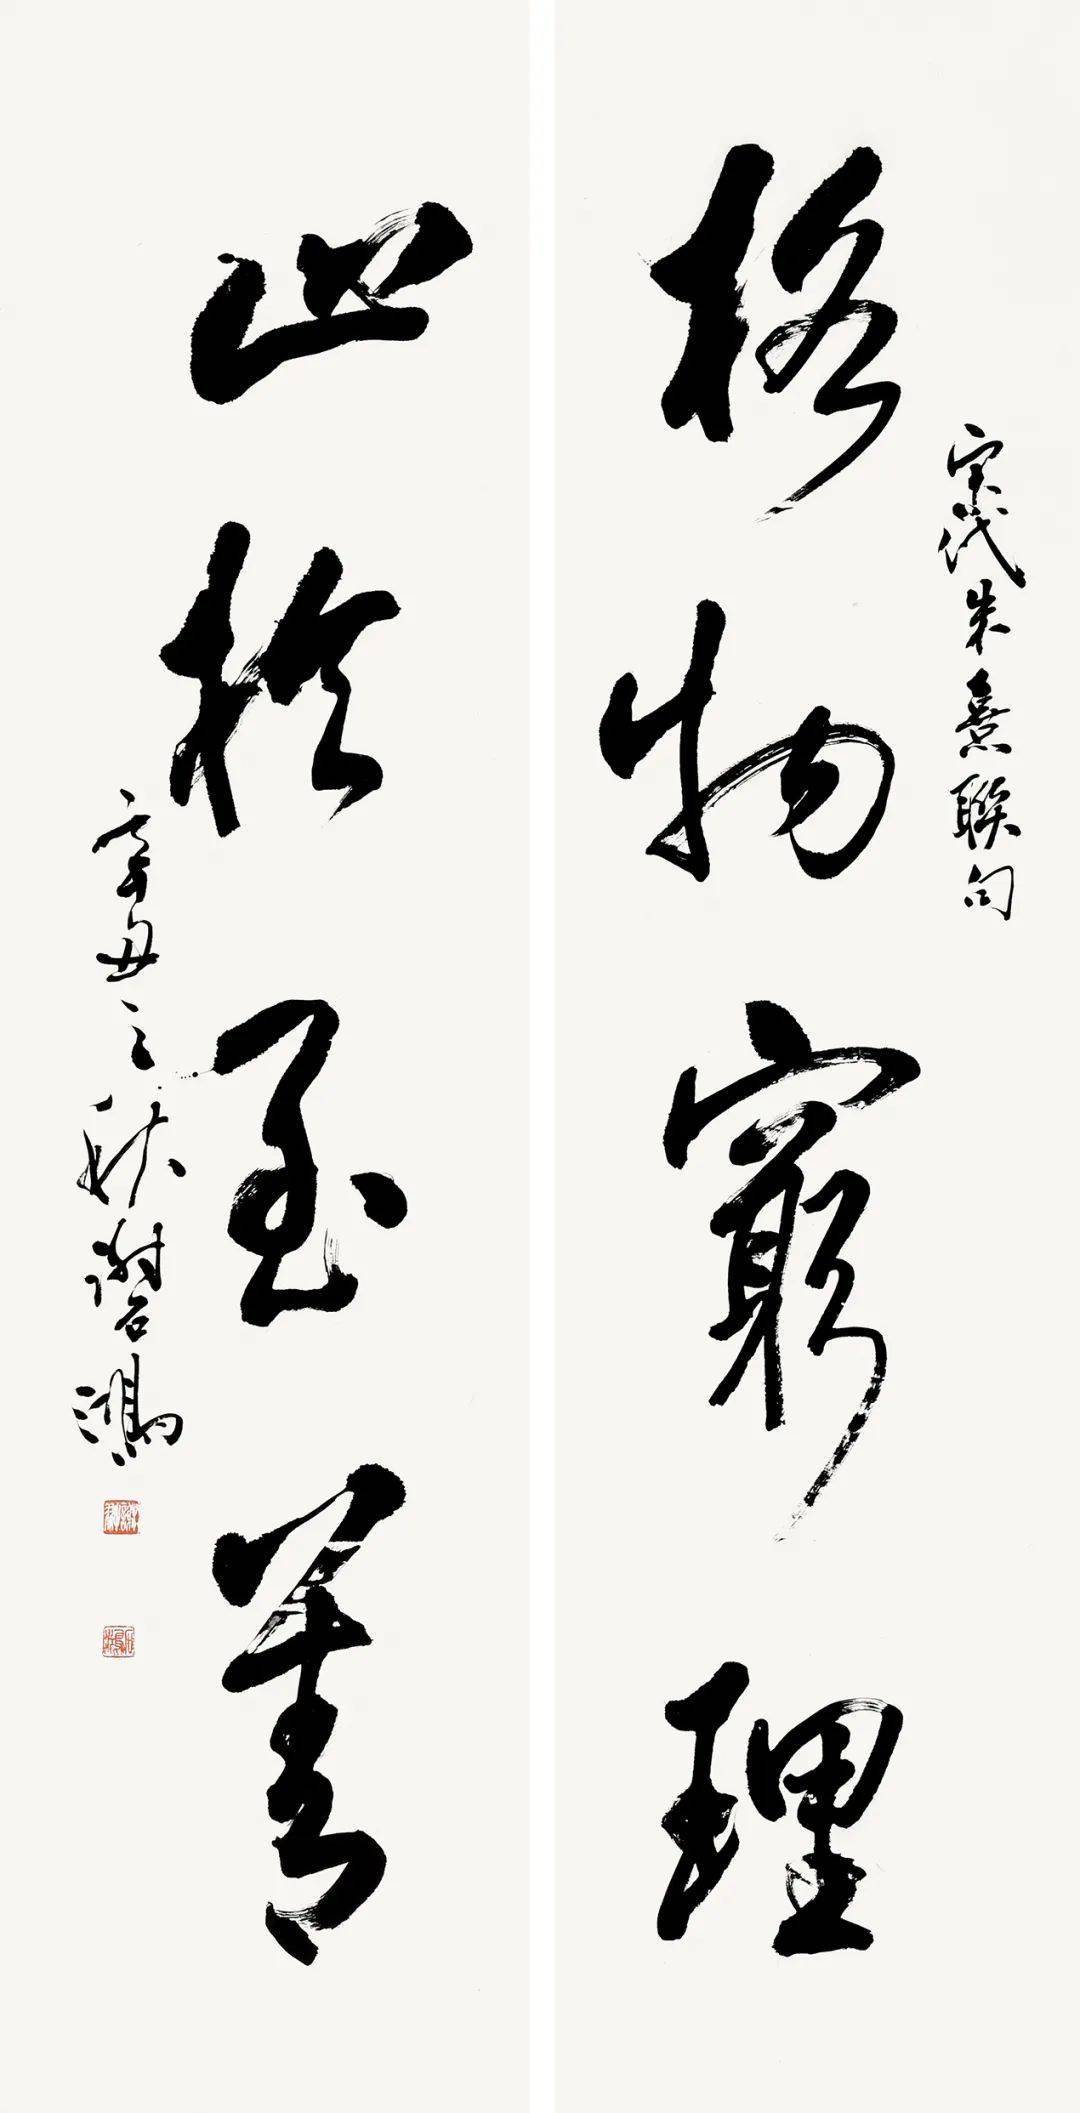 格物窮理
宋代朱熹聯句
止於至善
辛丑之秋謝石鴻